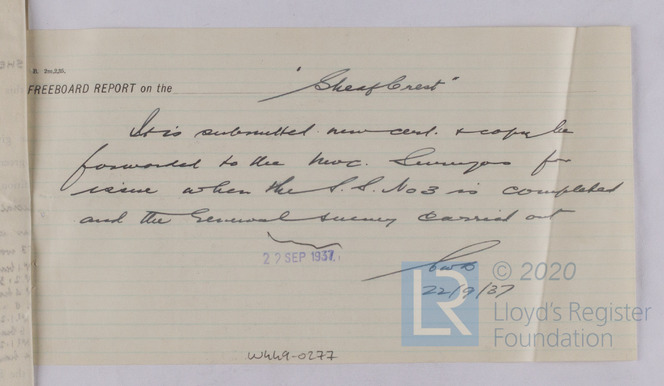 R. 2m,2,35.
FREEBOARD REPORT on the "Sheaf Crest"
It is submitted new cert. & copy be
forwarded to the Nwc. Surveyors for
issue when the S.S. No 3 is completed
and the General survey carried out
22 SEP 1937
22/9/37
W449-0277
LR
© 2020
Lloyd's Register
Foundation